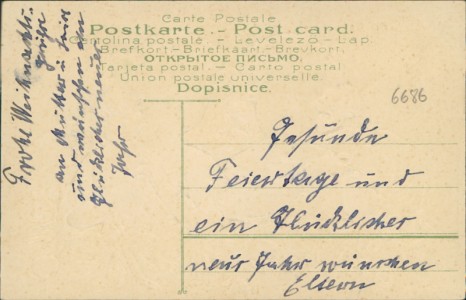 Carte Postale
Postkarte. - Post card.
Cartolina postale - Levelező-Lap.
Brefkort - Briefkaart - Brevkort.
ОТКРЫТОЕ ПИСЬМО.
Tarjeta postal. - Carto postal
Union postale universelle.
Dopisnice.
6686
Frohe Weihnachts-
grüße
an Mutter u
und wünschen ein
Glückliches neues
Jahr
Gesunde
Feiertage und
ein Glückliches
neus Jahr wünschen
Eltern